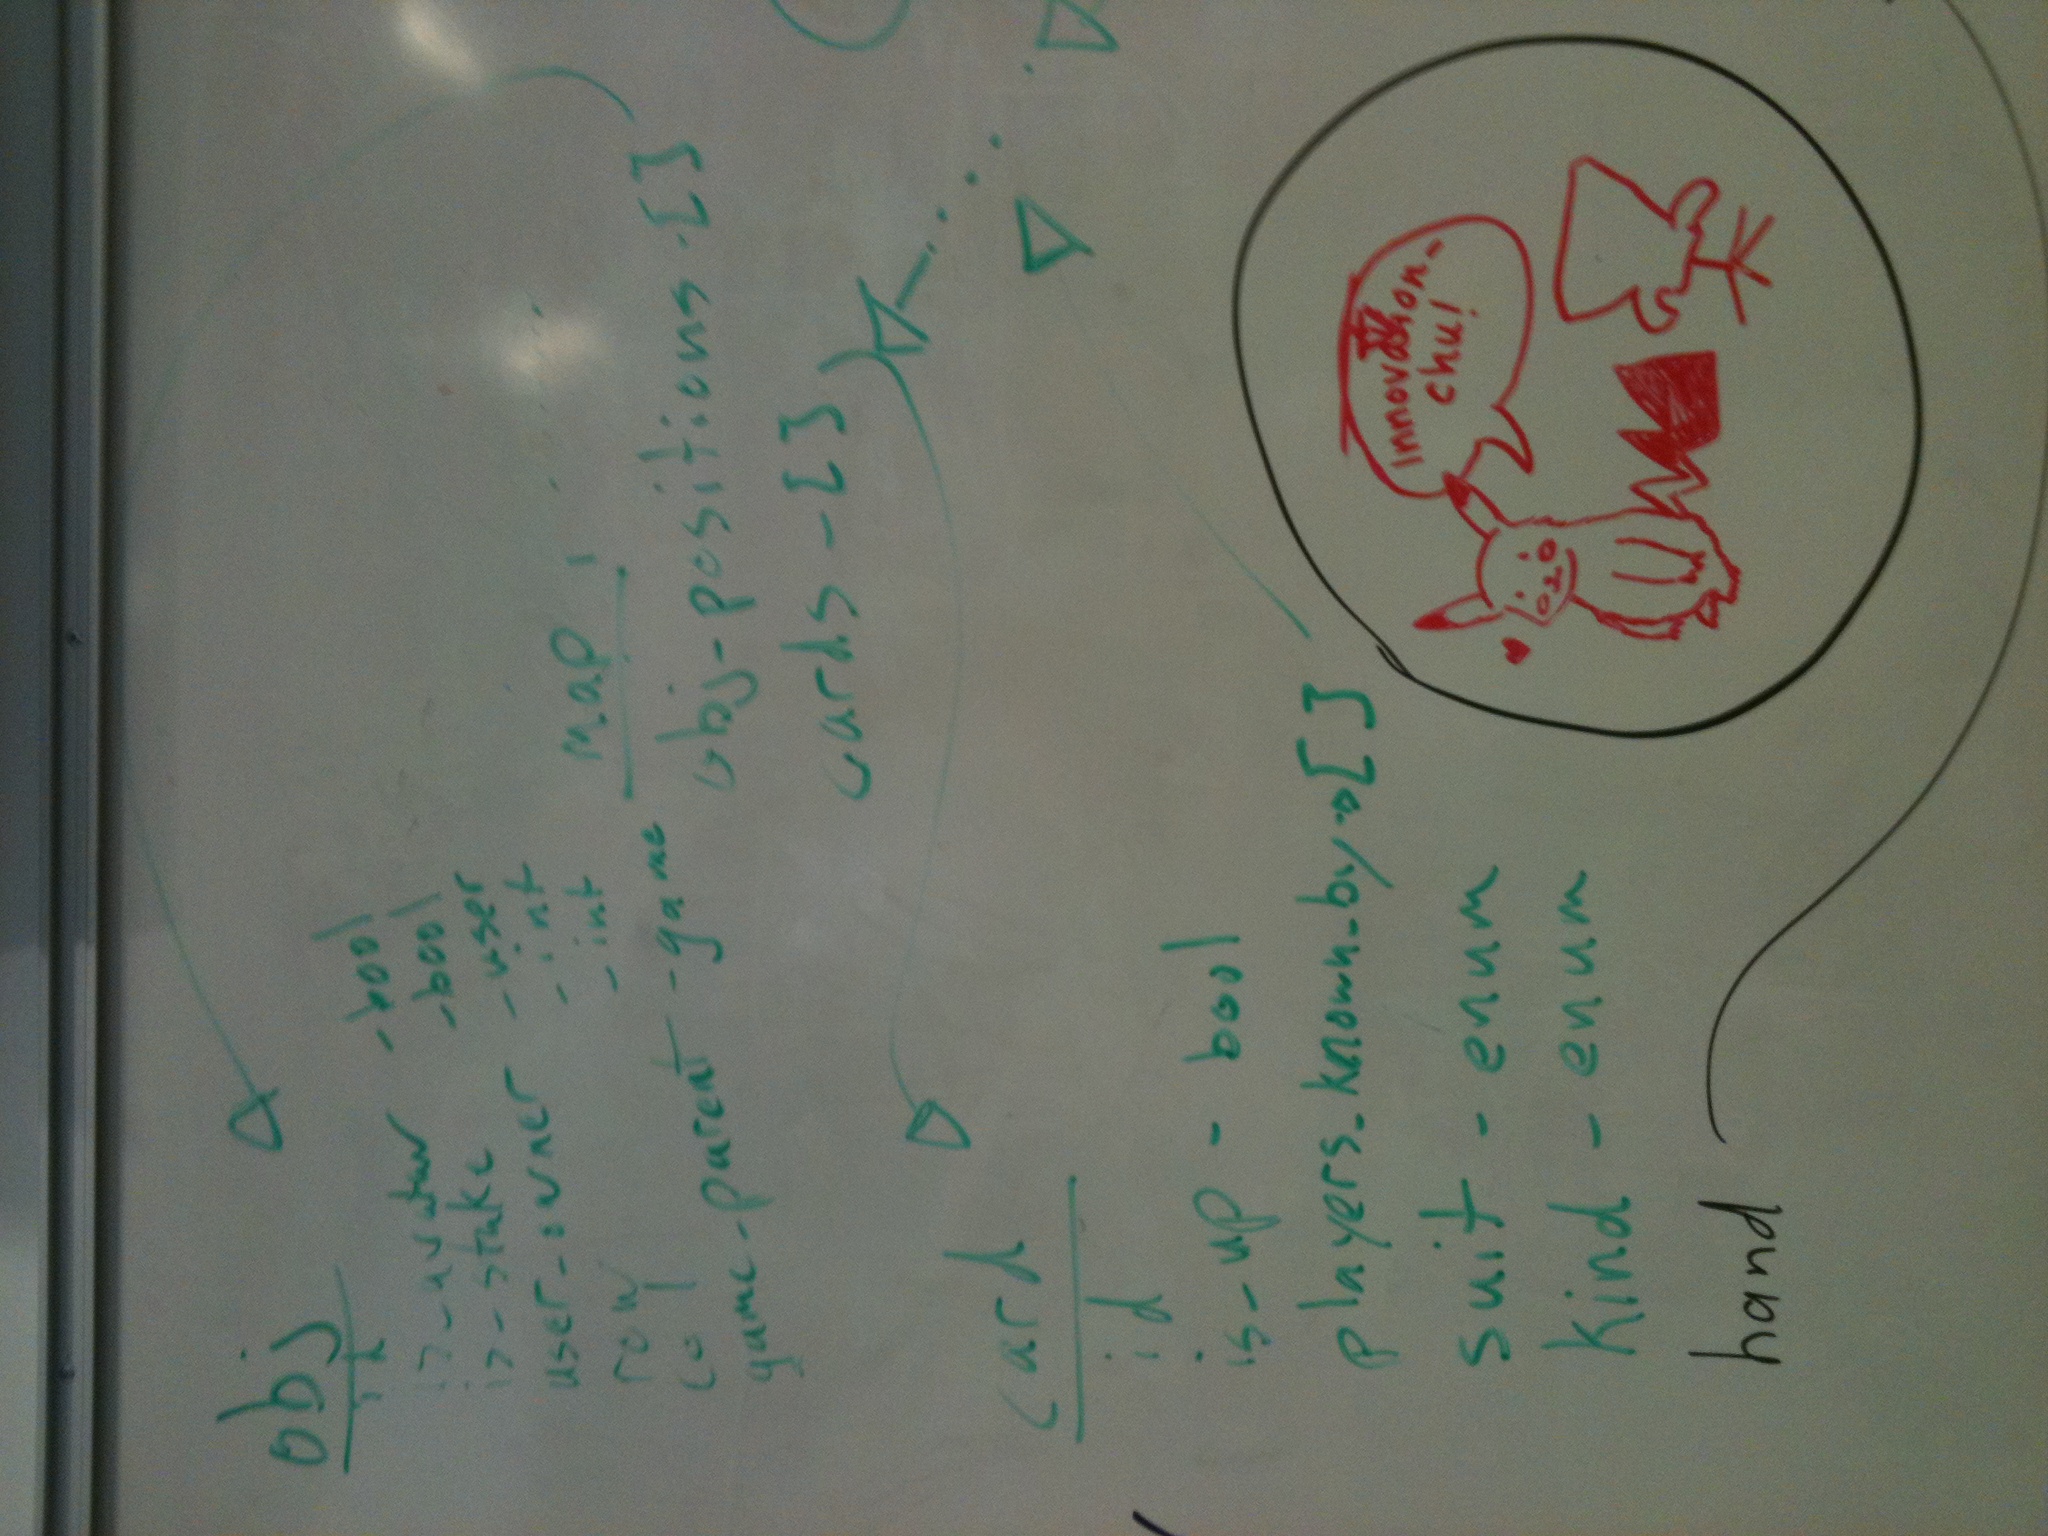 obj
id
is_avatar - bool
is_stake - bool
user_owner - user
row - int
col - int
game_parent - game
map
obj_positions - []
cards - []
card
id
is_up - bool
players_known_by → []
suit - enum
kind - enum
hand
Innovation-
chu!